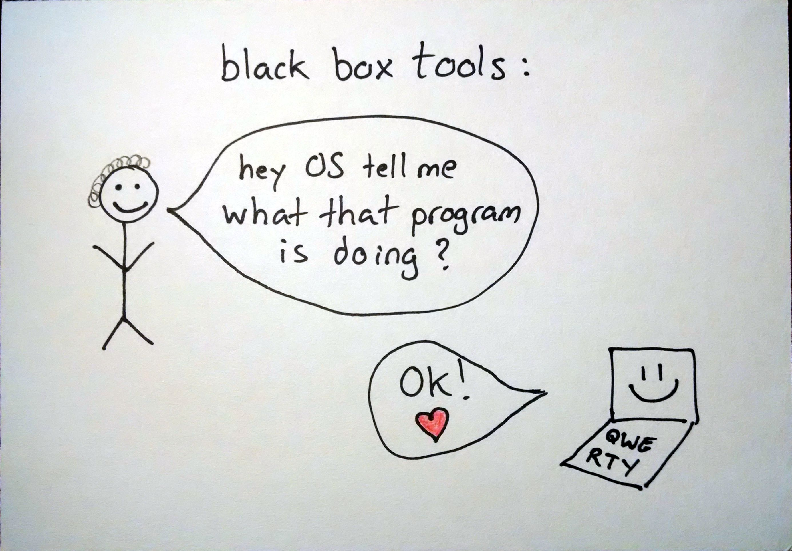 black box tools:
hey OS tell me
what that program
is doing?
OK!
QWE
RTY